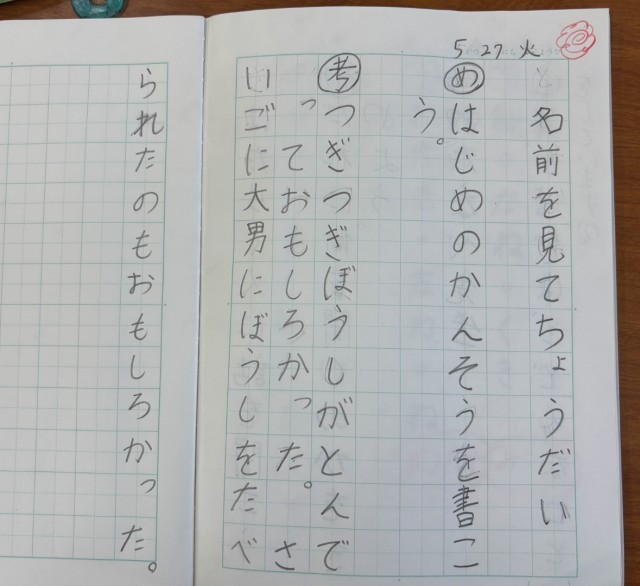 5 27 火
名前を見てちょうだい
めはじめのかんそうを書こ
う。
考つぎつぎぼうしがとんで
っておもしろかった。さ
いごに大男にぼうしをたべ
られたのもおもしろかった。